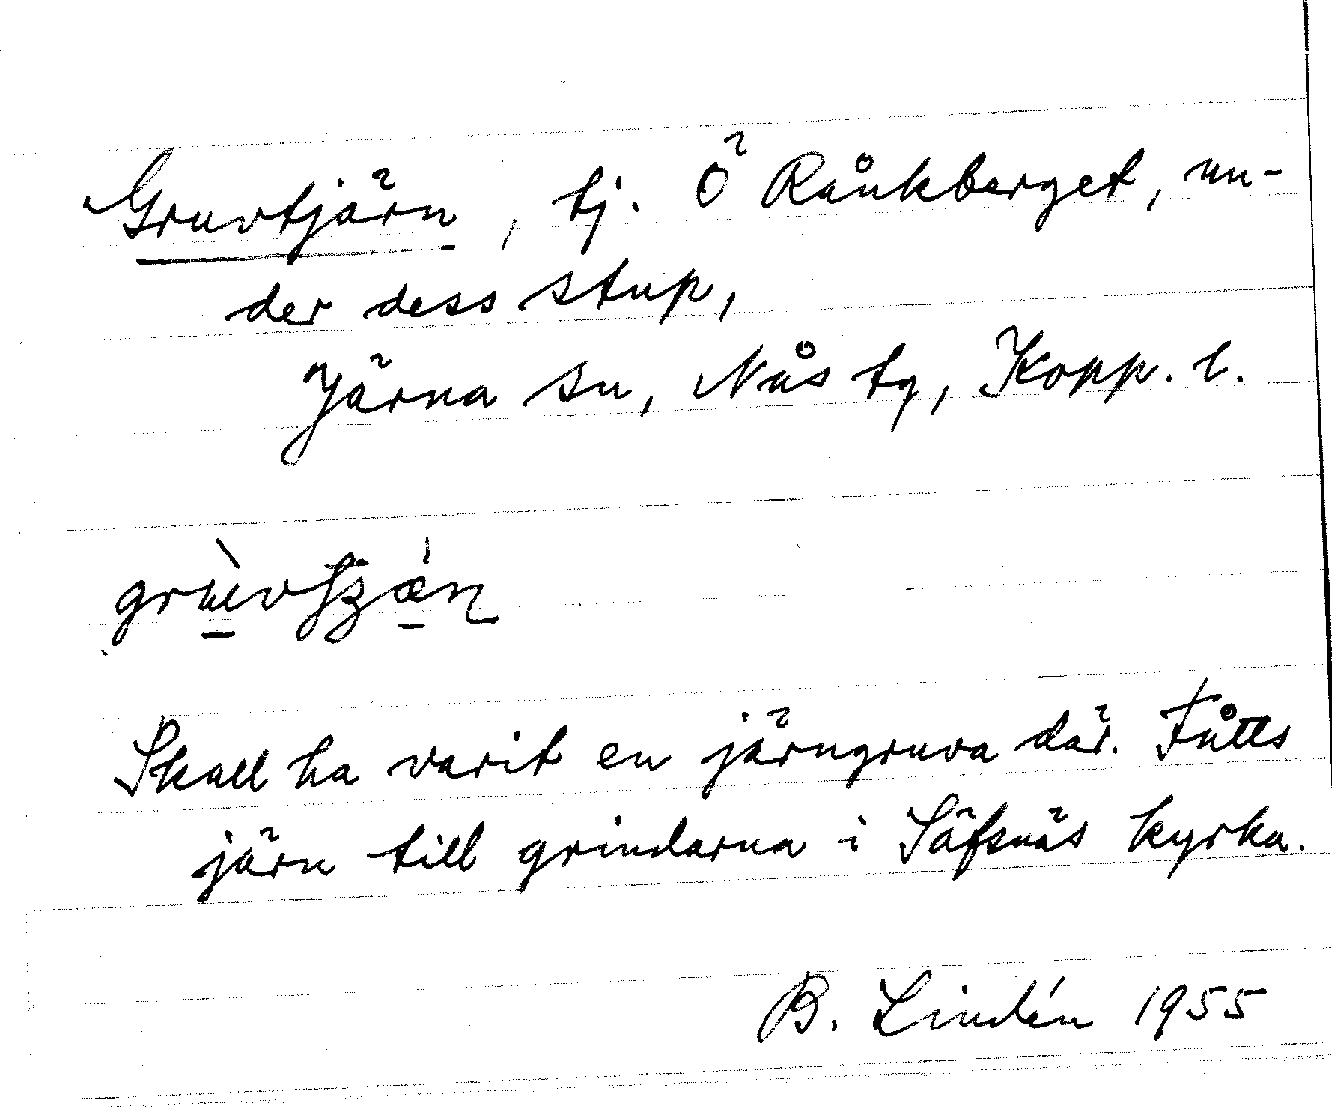 Gruvtjärn, tj. Ö Råukberget, un-
der dess stup,
Järna sn, Nås tg, Kopp. l.
Skall ha varit en järngruva där. Fåtts
järn till grindarna i Säfsnäs kyrka.
B. Lindén 1955